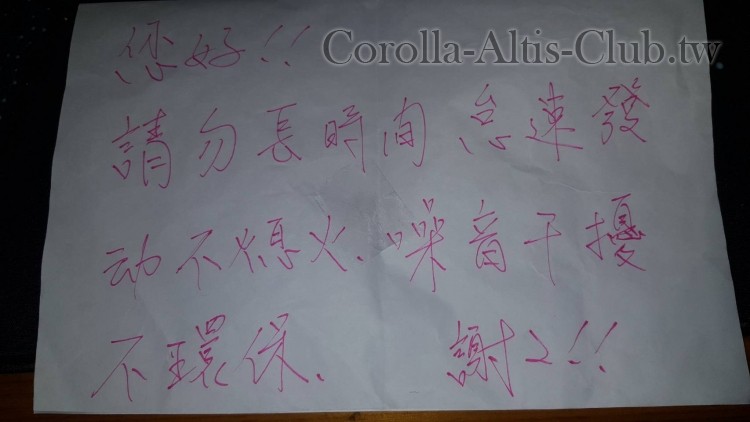 您好!!
Corolla-Altis-Club.tw
請勿長時间怠速發
动不熄火、噪音干擾
不環保、 謝2!!